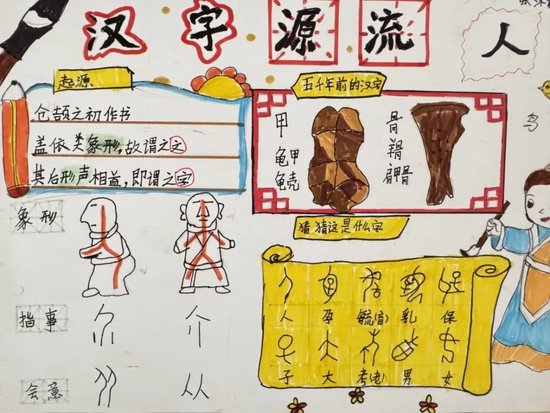 汉字源流
人
起源
仓颉之初作书
盖依类象形,故谓之文
其后形声相益,即谓之字
五千年前的汉字
甲
龟甲
龟壳
骨
鸟
象形
猜猜这是什么字
人 孕 毓(育) 乳 保
子 大 考(老) 男 女
指事
介
会意
从